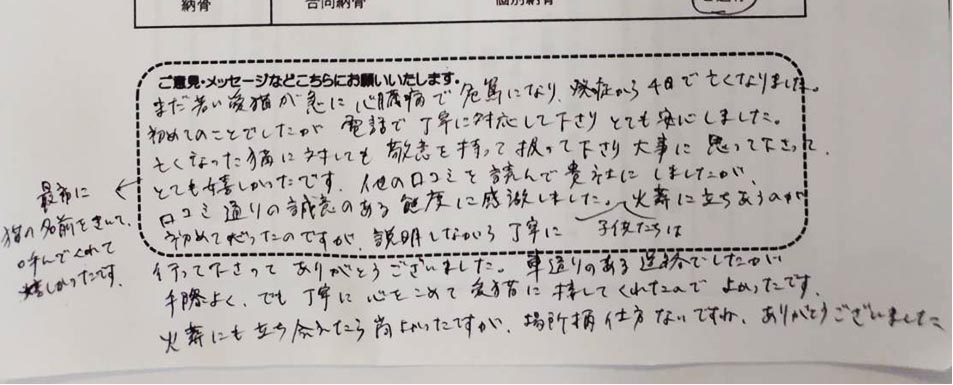 納骨 合同納骨 個別納骨
ご意見・メッセージなどこちらにお願いいたします。
まだ若い愛猫が急に心臓病で危篤になり、発症から4日で亡くなりました。
初めてのことでしたが 電話で丁寧に対応して下さり とても安心しました。
亡くなった猫に対しても 敬意を持って扱って下さり 大事に思って下さって、
とても嬉しかったです。他の口コミを読んで貴社にしましたが、
口コミ通りの誠意のある態度に感激しました。火葬に立ちあうのが
子供たちは
初めてだったのですが、説明しながら丁寧に
行って下さって ありがとうございました。車通りのある道路でしたが
手際よく、でも丁寧に心をこめて愛猫に接してくれたので よかったです。
火葬にも立ち会えたら尚よかったですが、場所柄仕方ないですね。ありがとうございました
最初に
猫の名前をきいて、
呼んでくれて
嬉しかったです。